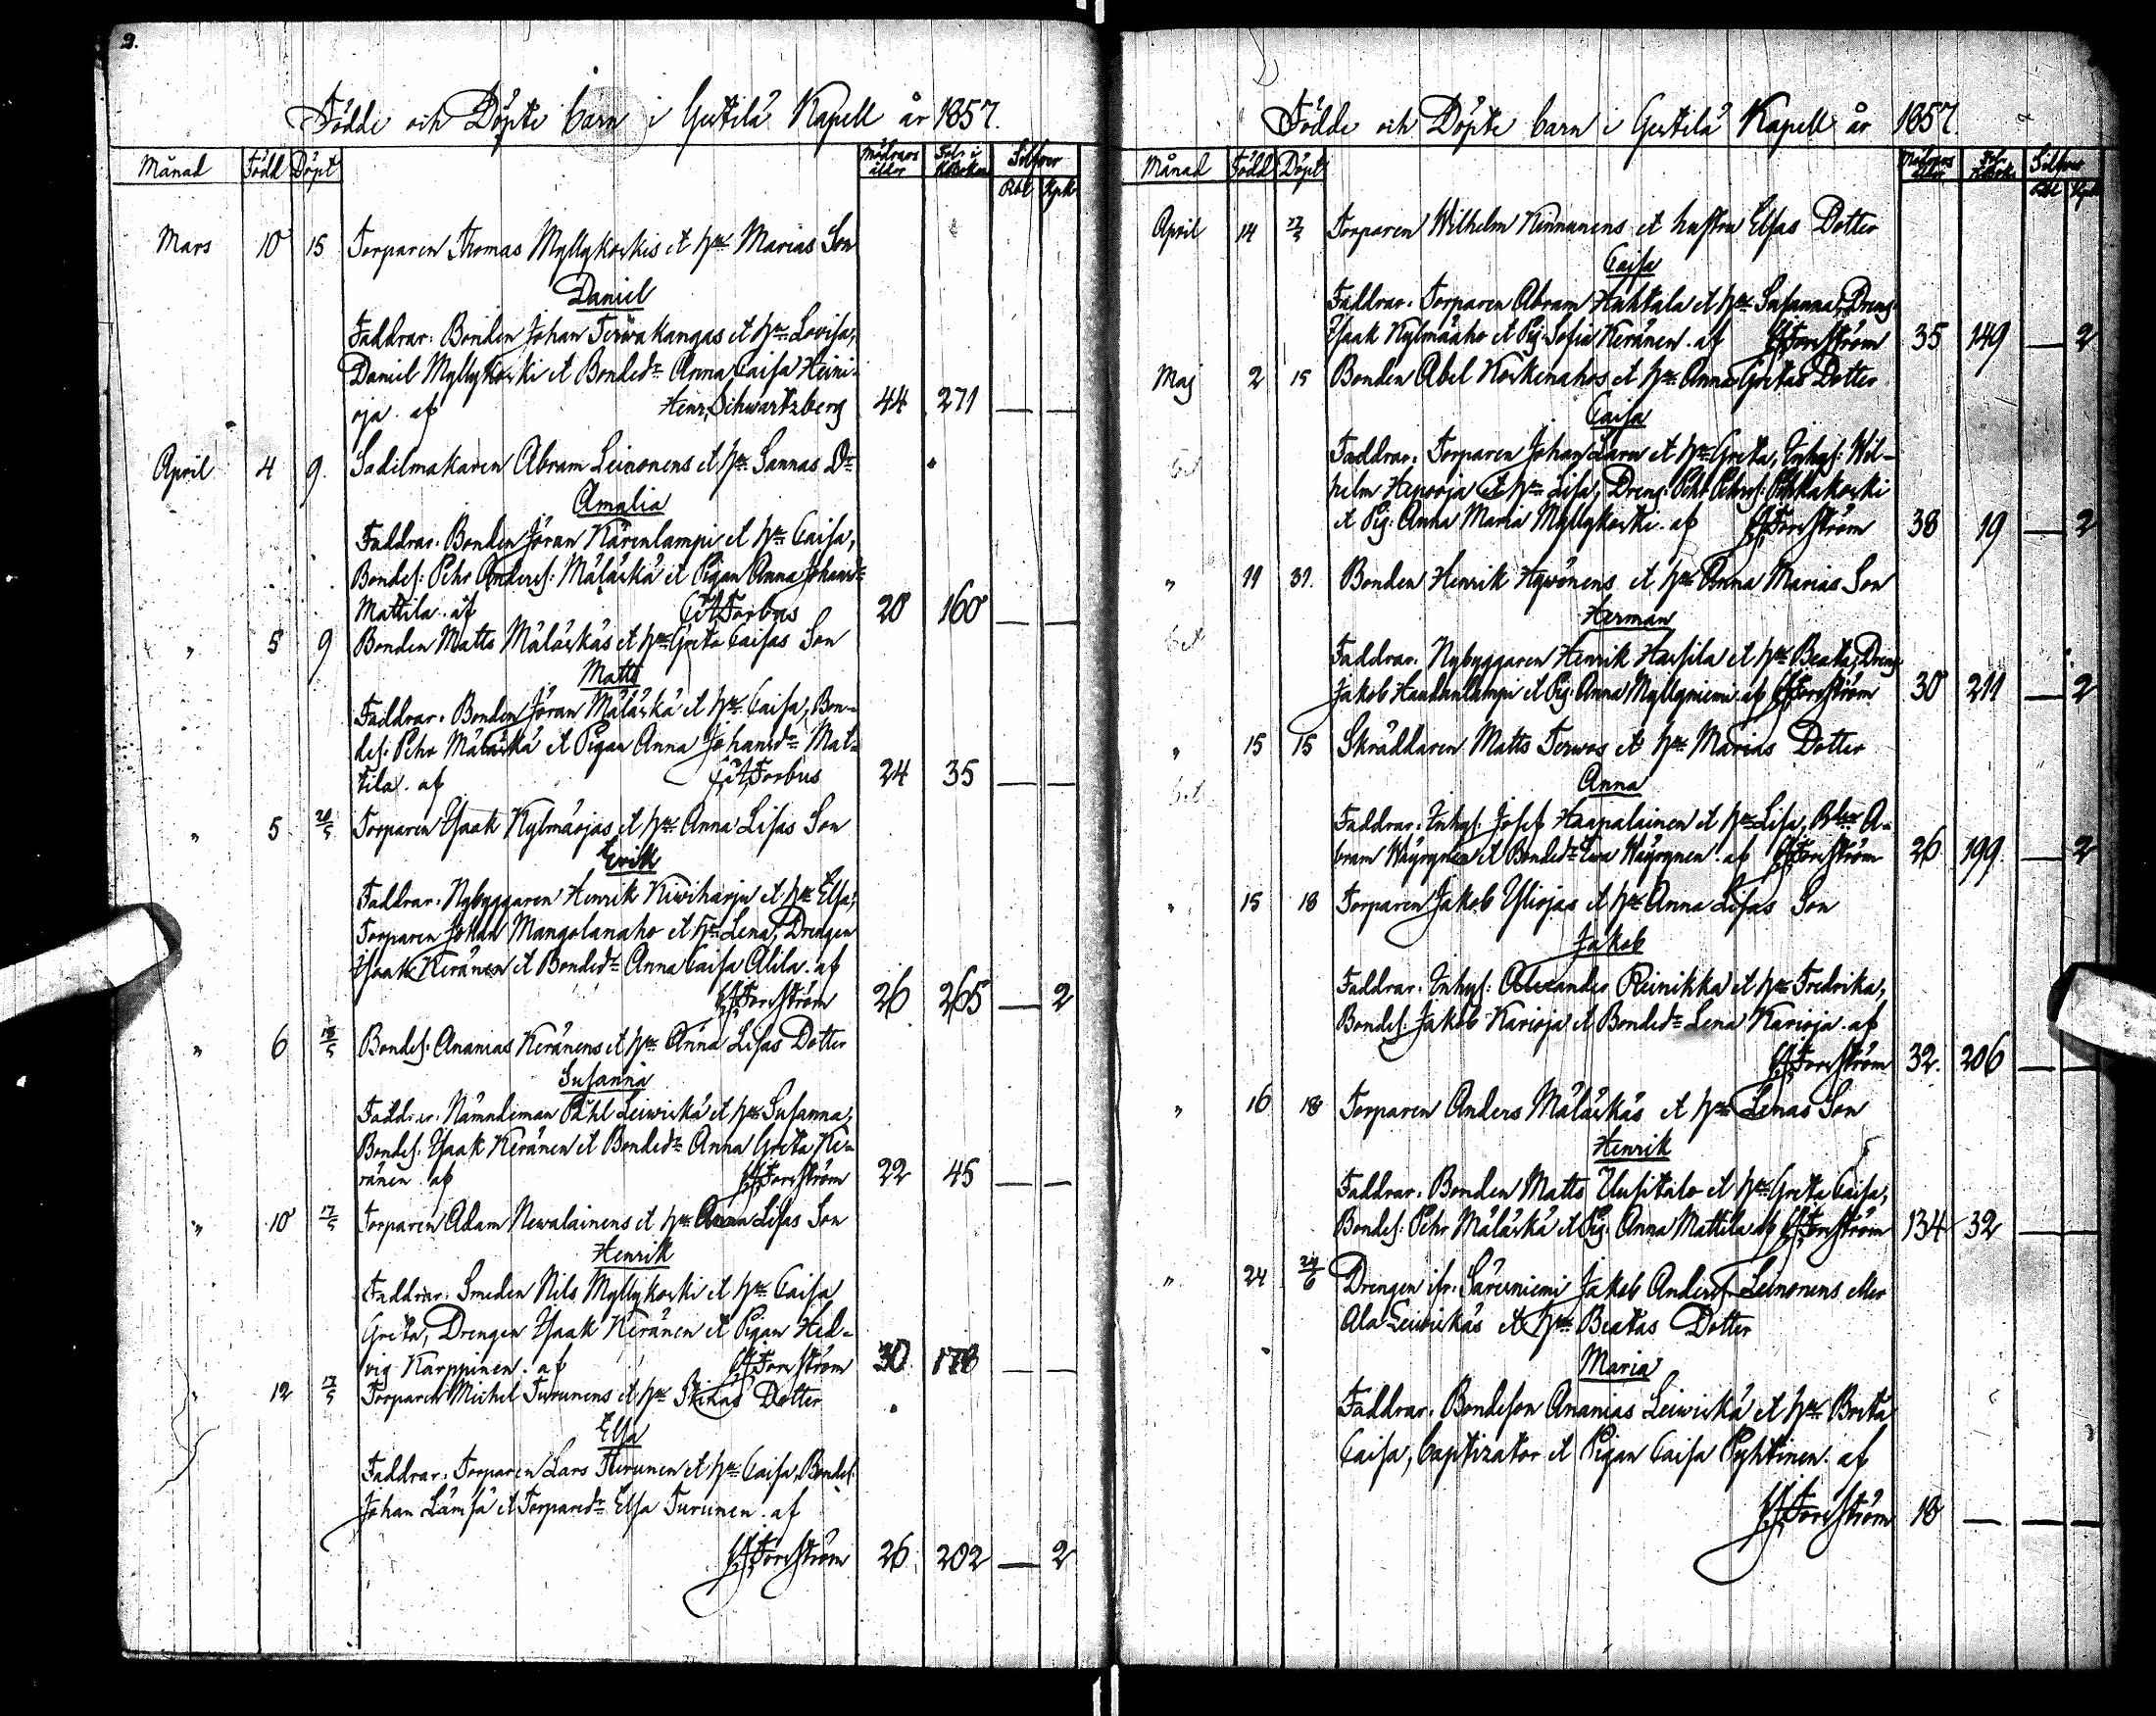 2.
Födde och Döpte barn i Gestilä Kapell år 1857.
Månad Född Döpt Mödrars ålder Fol. i KBoken Silfver Rbl Kpk
Mars 10 15 Torparen Thomas Myllykoskis et hu Marias Son
Daniel
Faddrar: Bonden Johan Terwakangas et hu Lovisa,
Daniel Myllykoski et Bonded:r Anna Caisa Heini-
oja. af Henr. Schwartzberg 44 271 — —
April 4 9. Sadilmakaren Abram Leinonens et hu Sannas D:r
Amalia
Faddrar: Bonden Jöran Kärenlampi et hu Caisa,
Bondes: Pehr Anders: Mäläskä et Pigan Anna Johansd:r
Mattila. af C:A:Forbus 28 160 — —
" 5 9 Bonden Matts Mäläskäs et hu Greta Caisas Son
Matts
Faddrar: Bonden Jöran Mäläskä et hu Caisa, Bon-
des: Pehr Mäläskä et Pigan Anna Johansd:r Mat-
tila. af C:A:Forbus 24 35 — —
" 5 20/5 Torparen Isaak Kylmäojas et hu Anna Lisas Son
Erik
Faddrar: Nybyggaren Henrik Kiwiharju et hu Elsa;
Torparen Johan Mangolanaho et hu Lena, Drengen
Isaak Keränen et Bonded:r Anna Caisa Alila. af
Forsström 26 265 — 2
" 6 18/5 Bondes: Ananias Keränens et hu Anna Lisas Dotter
Susanna
Faddrar: Nämndeman Påhl Leiwiskä et hu Susanna,
Bondes: Isaak Keränen et Bonded:r Anna Greta Ke-
ränen. af Forsström 22 45 — —
" 10 17/5 Torparen Adam Newalainens et hu Anna Lisas Son
Henrik
Faddrar: Smeden Nils Myllykoski et hu Caisa
Greta, Drengen Isaak Keränen et Pigan Hed-
vig Karppinen. af Forsström 30 178 — —
" 12 17/5 Torparen Michel Turunens et hu Stinas Dotter
Elsa
Faddrar: Torparen Lars Turunen et hu Caisa, Bondes:
Johan Lämsä et Torpared:r Elsa Turunen. af
Forsström 26 202 — 2
Födde och Döpte barn i Gestilä Kapell år 1857.
Månad Född Döpt Mödrars ålder Fol. KBok: Silfver Rbl Kpk
April 14 27/5 Torparen Wilhelm Kinnunens et hustru Elsas Dotter
Caisa
Faddrar: Torparen Abram Huhtala et hu Susanna, Dreng:
Isaak Kylmäaho et Pig: Sofia Keränen. af Forsström 35 149 — 2
Maj 2 15 Bonden Abel Koskenahos et hu Anna Gretas Dotter
Caisa
Faddrar: Torparen Johan Laru et hu Greta, Inhys: Wil-
helm Heposoja et hu Lisa, Dreng: Pehr Pehrs: Pihkakoski
et Pig: Anna Maria Myllykoski. af Forsström 38 19 — 2
" 11 31. Bonden Henrik Hywönens et hu Anna Marias Son
Herman
Faddrar: Nybyggaren Henrik Harsila et hu Beata, Dreng
Jakob Haudanlampi et Pig: Anna Myllyniemi. af Forsström 30 211 — 2
" 15 15 Skräddaren Matts Terwos et hu Marias Dotter
Anna
Faddrar: Inhys: Josef Haapalainen et hu Lisa, A-
bram Wäyrynen et Bonded:r Ewa Wäyrynen. af Forsström 26 199 — 2
" 15 18 Torparen Jakob Yliojas et hu Anna Lisas Son
Jakob
Faddrar: Inhys: Alexander Reinikka et hu Fredrika,
Bondes: Jakob Karioja et Bonded:r Lena Karioja. af
Forsström 32. 206 — —
" 16 18 Torparen Anders Mäläskäs et hu Lenas Son
Henrik
Faddrar: Bonden Matts Uusitalo et hu Greta Caisa,
Bondes: Pehr Mäläskä et Pig: Anna Mattila af Forsström 34 32 — —
" 24 24/6 Drengen ifr. Säresniemi Jakob Anders: Leinonens eller
Ala Leiwiskäs et hu Beatas Dotter
Maria
Faddrar: Bondeson Ananias Leiwiskä et hu Brita
Caisa, baptizator et Pigan Caisa Pyhtinen. af
Forsström 18 — — —